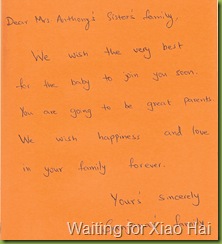 Dear Mrs Anthony's Sister's family,
We wish the very best
for the baby to join you soon.
You are going to be great parents.
We wish happiness and love
in your family forever.
Your's sincerely
family
Waiting for Xiao Hai